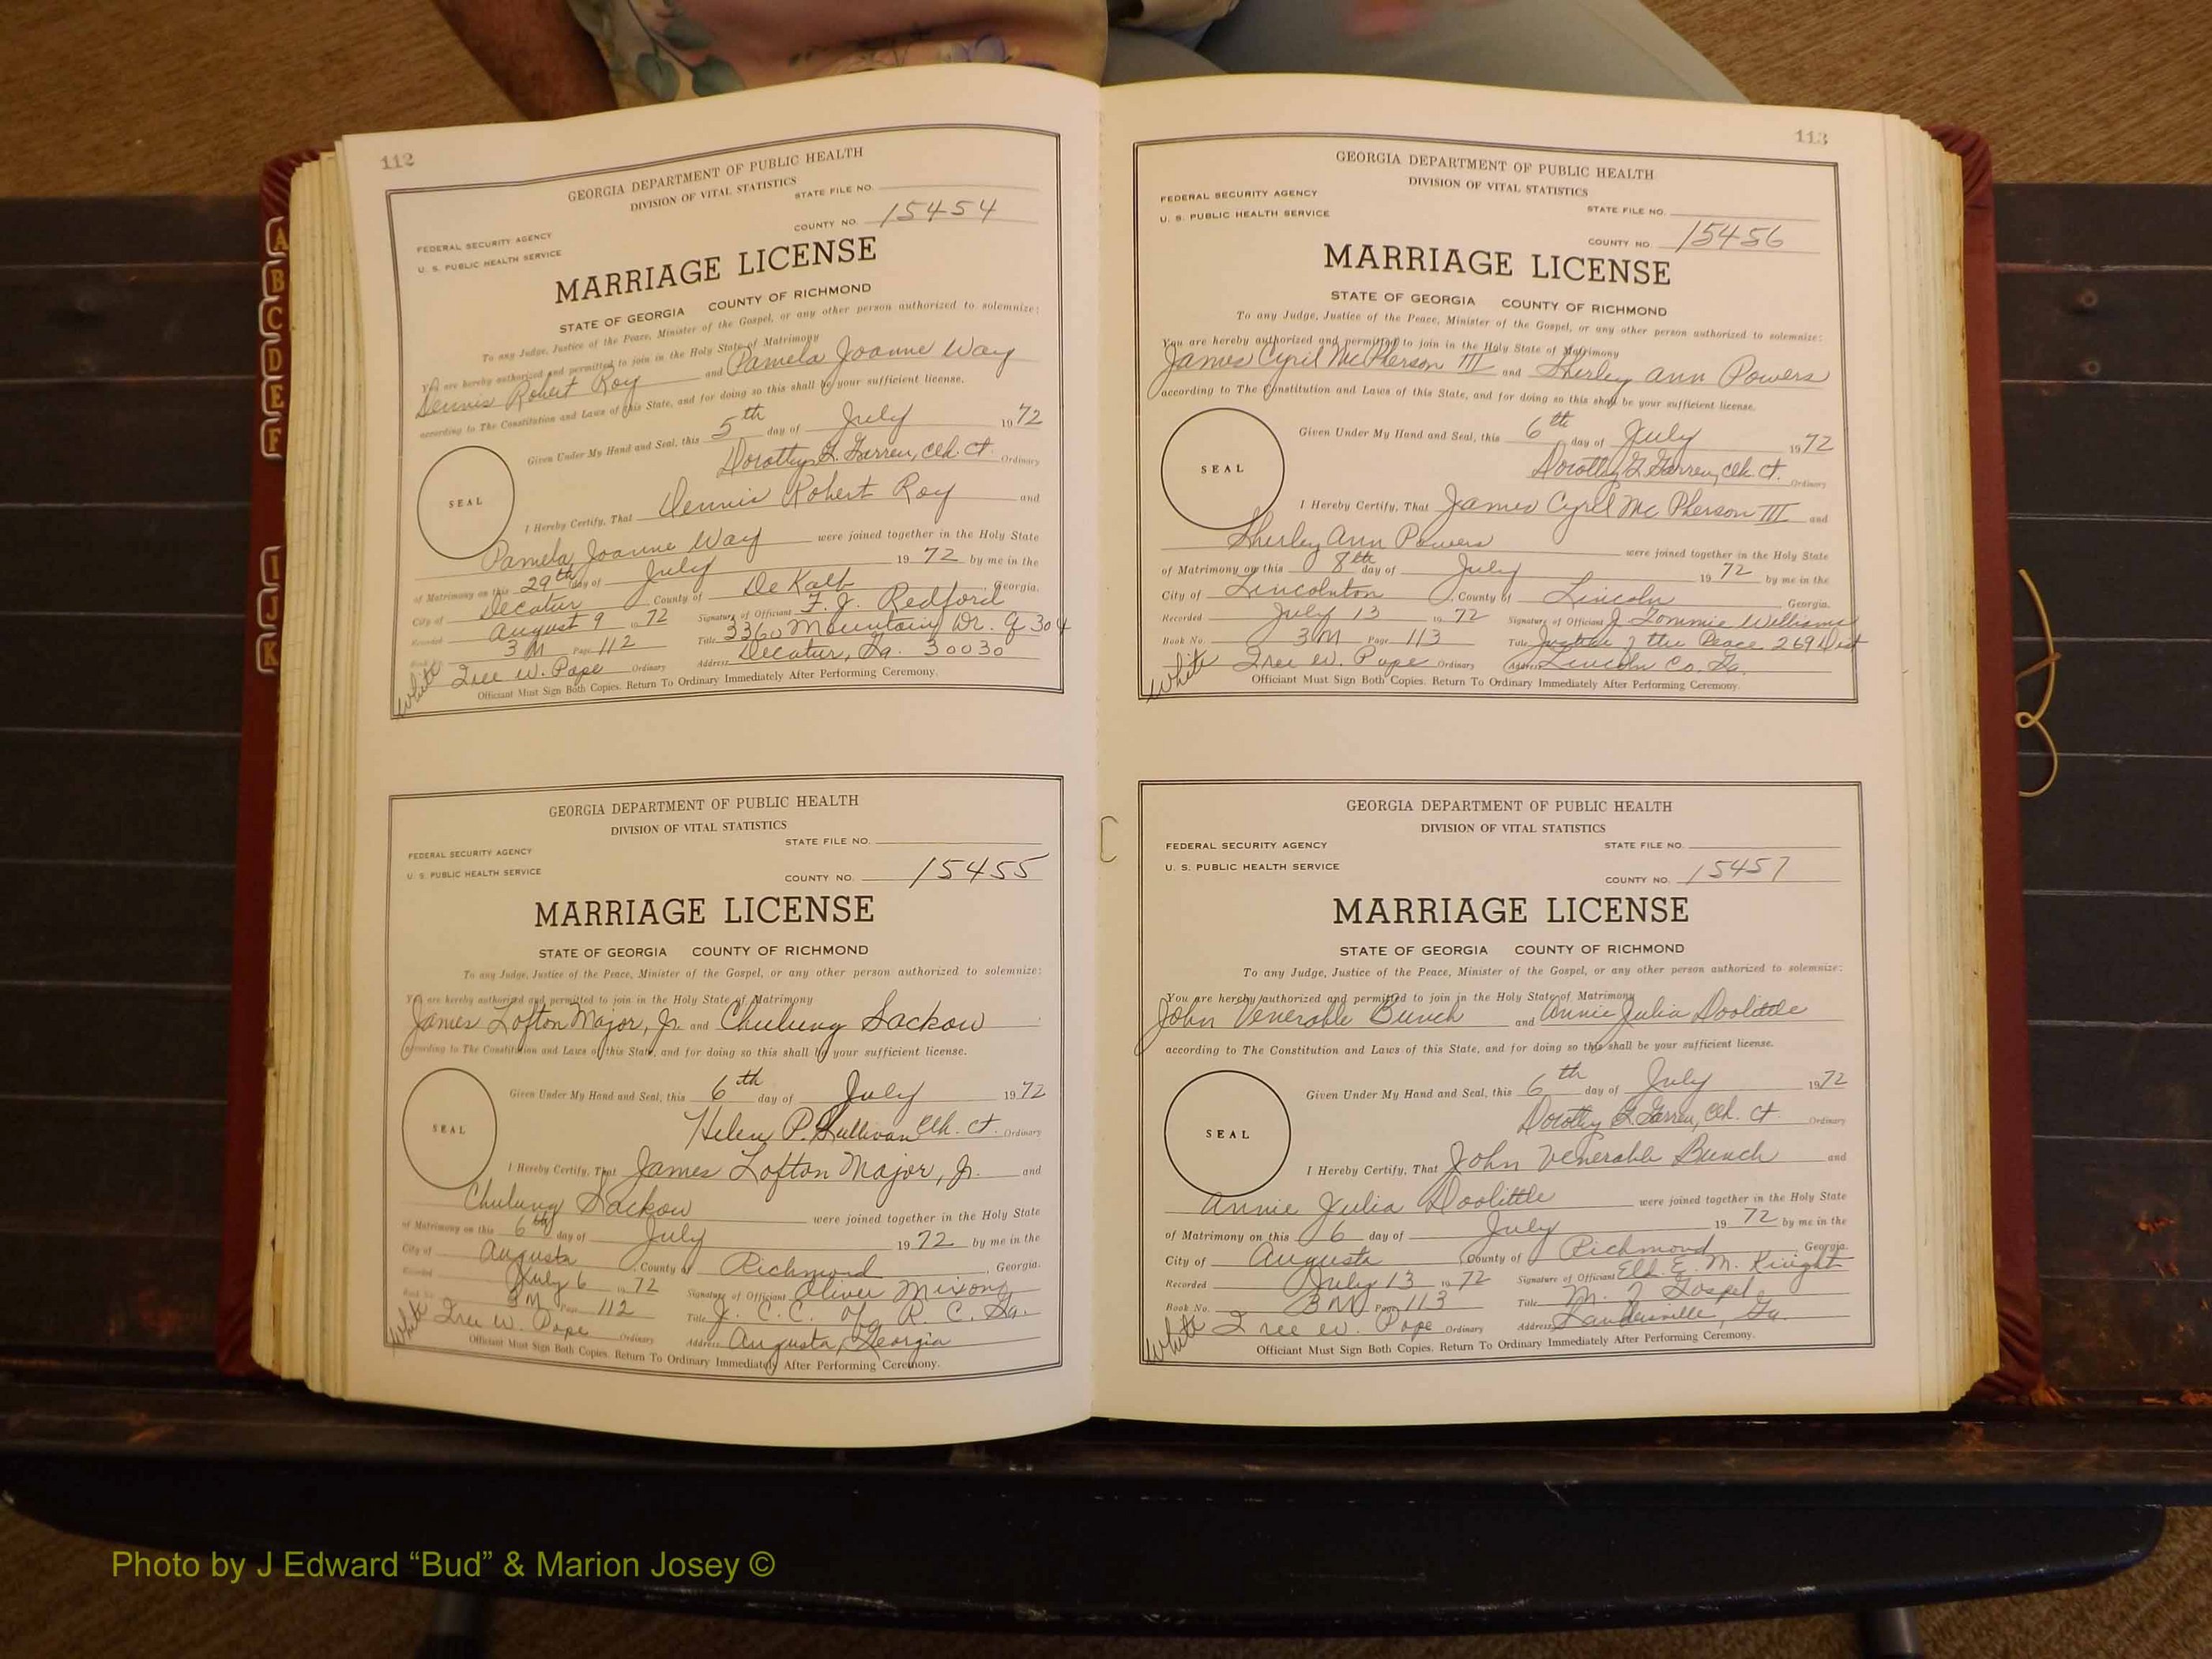 112
GEORGIA DEPARTMENT OF PUBLIC HEALTH
DIVISION OF VITAL STATISTICS
STATE FILE NO.
COUNTY NO. 15454
FEDERAL SECURITY AGENCY
U. S. PUBLIC HEALTH SERVICE
MARRIAGE LICENSE
STATE OF GEORGIA COUNTY OF RICHMOND
To any Judge, Justice of the Peace, Minister of the Gospel, or any other person authorized to solemnize:
You are hereby authorized and permitted to join in the Holy State of Matrimony
Dennis Robert Roy and Pamela Joanne Way
according to The Constitution and Laws of this State, and for doing so this shall be your sufficient license.
Given Under My Hand and Seal, this 5th day of July 1972
Dorothy Garren, Clk. Ct. Ordinary
SEAL
I Hereby Certify, That Dennis Robert Roy and
Pamela Joanne Way were joined together in the Holy State
of Matrimony on this 29th day of July 1972 by me in the
City of Decatur County of De Kalb, Georgia.
Recorded August 9 1972 Signature of Officiant F. J. Redford
Book No. 3M Page 112 Title 3360 Mountain Dr. 304
White Ordinary W. Pope Address Decatur, Ga. 30030
Officiant Must Sign Both Copies. Return To Ordinary Immediately After Performing Ceremony.
GEORGIA DEPARTMENT OF PUBLIC HEALTH
DIVISION OF VITAL STATISTICS
STATE FILE NO.
FEDERAL SECURITY AGENCY
U. S. PUBLIC HEALTH SERVICE
COUNTY NO. 15455
MARRIAGE LICENSE
STATE OF GEORGIA COUNTY OF RICHMOND
To any Judge, Justice of the Peace, Minister of the Gospel, or any other person authorized to solemnize:
You are hereby authorized and permitted to join in the Holy State of Matrimony
James Lofton Major, Jr. and Chulung Sackow
according to The Constitution and Laws of this State, and for doing so this shall be your sufficient license.
Given Under My Hand and Seal, this 6th day of July 1972
Helen P. Sullivan Clk. Ct. Ordinary
SEAL
I Hereby Certify, That James Lofton Major, Jr. and
Chulung Sackow were joined together in the Holy State
of Matrimony on this 6th day of July 1972 by me in the
City of Augusta County of Richmond, Georgia.
Recorded July 6 1972 Signature of Officiant Oliver Mixon
Book No. 3M Page 112 Title J. C. C. of R. C. Ga.
White W. Pope Ordinary Address Augusta, Georgia
Officiant Must Sign Both Copies. Return To Ordinary Immediately After Performing Ceremony.
113
GEORGIA DEPARTMENT OF PUBLIC HEALTH
DIVISION OF VITAL STATISTICS
FEDERAL SECURITY AGENCY
U. S. PUBLIC HEALTH SERVICE
STATE FILE NO.
COUNTY NO. 15456
MARRIAGE LICENSE
STATE OF GEORGIA COUNTY OF RICHMOND
To any Judge, Justice of the Peace, Minister of the Gospel, or any other person authorized to solemnize:
You are hereby authorized and permitted to join in the Holy State of Matrimony
James Cyril McPherson III and Shirley Ann Powers
according to The Constitution and Laws of this State, and for doing so this shall be your sufficient license.
Given Under My Hand and Seal, this 6th day of July 1972
Dorothy Garren, Clk. Ct. Ordinary
SEAL
I Hereby Certify, That James Cyril McPherson III and
Shirley Ann Powers were joined together in the Holy State
of Matrimony on this 8th day of July 1972 by me in the
City of Lincolnton County of Lincoln, Georgia.
Recorded July 13 1972 Signature of Officiant J. Tommie Williams
Book No. 3M Page 113 Title Justice of the Peace 269 Dist
White W. Pope Ordinary Address Lincoln Co. Ga.
Officiant Must Sign Both Copies. Return To Ordinary Immediately After Performing Ceremony.
GEORGIA DEPARTMENT OF PUBLIC HEALTH
DIVISION OF VITAL STATISTICS
FEDERAL SECURITY AGENCY
U. S. PUBLIC HEALTH SERVICE
STATE FILE NO.
COUNTY NO. 15457
MARRIAGE LICENSE
STATE OF GEORGIA COUNTY OF RICHMOND
To any Judge, Justice of the Peace, Minister of the Gospel, or any other person authorized to solemnize:
You are hereby authorized and permitted to join in the Holy State of Matrimony
John Venerable Bunch and Annie Julia Doolittle
according to The Constitution and Laws of this State, and for doing so this shall be your sufficient license.
Given Under My Hand and Seal, this 6th day of July 1972
Dorothy Garren, Clk. Ct. Ordinary
SEAL
I Hereby Certify, That John Venerable Bunch and
Annie Julia Doolittle were joined together in the Holy State
of Matrimony on this 6 day of July 1972 by me in the
City of Augusta County of Richmond Georgia.
Recorded July 13 1972 Signature of Officiant Eld. E. M. Knight
Book No. 3M Page 113 Title M. Gospel
White W. Pope Ordinary Address Ga.
Officiant Must Sign Both Copies. Return To Ordinary Immediately After Performing Ceremony.
A
B
C
D
E
F
I
J
K
Photo by J Edward “Bud” & Marion Josey ©